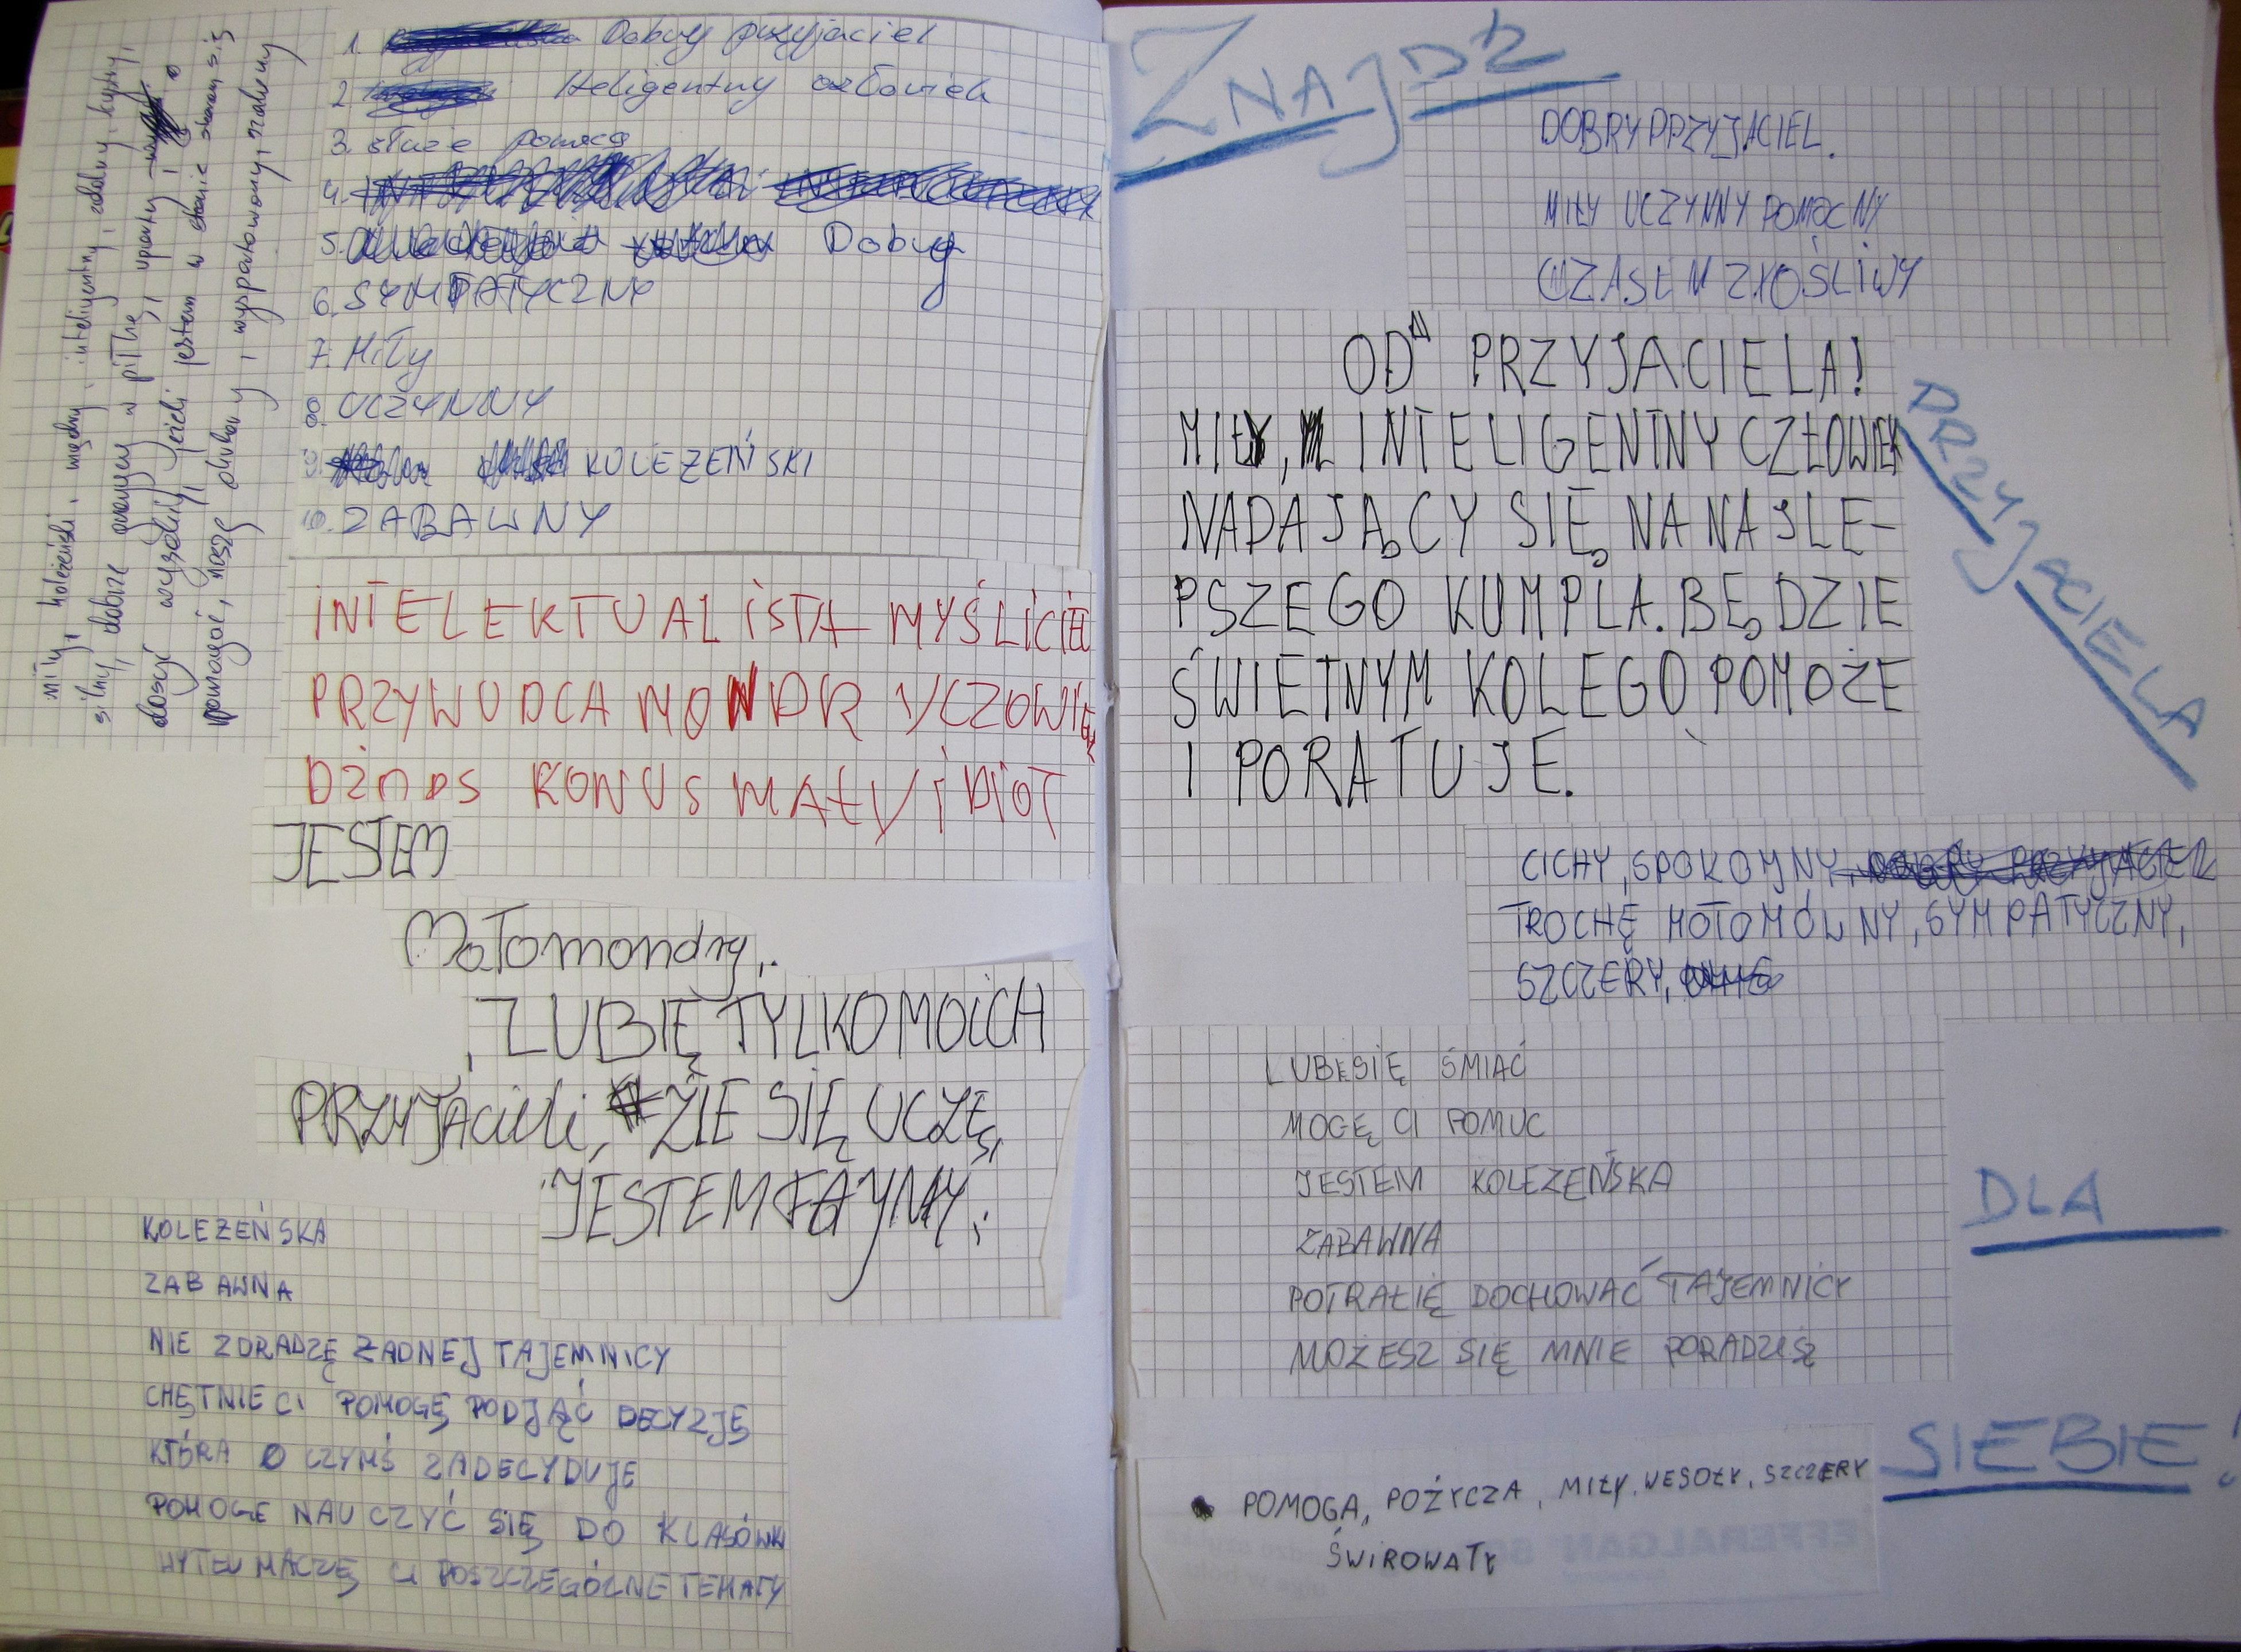 miły, koleżeński, mądry, inteligenty, zdolny, bystry,
silny, dobrze pracujey w piłkę, uparty,
dosyć wysoki, jeżeli jestem w stanie staram się
pomagać, noszę okulary, wysportowany, szalony
1. Dobry przyjaciel
2. Iteligentny człowiek
3. służe pomocą
4.
5. Dobry
6. SYMPATYCZNY
7. Miły
8. UCZYNNY
9. KOLEŻEŃSKI
10. ZABAWNY
INTELEKTUALISTA MYŚLICIEL
PRZYWUDCA MONDR YCZOWIĘ
DŻODS KONUS MAŁY IDIOT
JESTEM
Małomondry,.
, ZUBIĘ TYLKO MOICH
PRZYJACIELI, ŹIE SIĘ UCZĘ,
JESTEM FAJNY,
KOLEŻEŃSKA
ZABAWNA
NIE ZDRADZĘ ŻADNEJ TAJEMNICY
CHĘTNIE CI POMOGĘ PODJĄĆ DECYZJĘ
KTÓRA O CZYMŚ ZADECYDUJE
POMOGE NAUCZYĆ SIĘ DO KLASÓWKI
WYTŁUMACZĘ CI POSZCZEGÓLNE TEMATY
ZNAJDŹ
DOBRY PPRZYJACIEL.
MIŁY UCZYNNY POMOCNY
CZASEM ZŁOŚLIWY
OD PRZYJACIELA!
MIŁY, INTELIGENTNY CZŁOWIEK
NADAJĄCY SIĘ NA NAJLE-
PSZEGO KUMPLA. BĘDZIE
ŚWIETNYM KOLEGO POMOŻE
I PORATUJE.
PRZYJACIELA
CICHY, SPOKOJNY, DOBRY PRZYJACIEL
TROCHĘ MOŁOMÓWNY, SYMPATYCZNY,
SZCZERY,
LUBĘ SIĘ ŚMIAĆ
MOGĘ CI POMUC
JESTEM KOLEŻEŃSKA
ZABAWNA
POTRAFIĘ DOCHOWAĆ TAJEMNICY
MOŻESZ SIĘ MNIE PORADZIŚ
DLA
SIEBIE!
POMOGA, POŻYCZA, MIŁY, WESOŁY, SZCZERY
ŚWIROWATY
EFFERALGAN